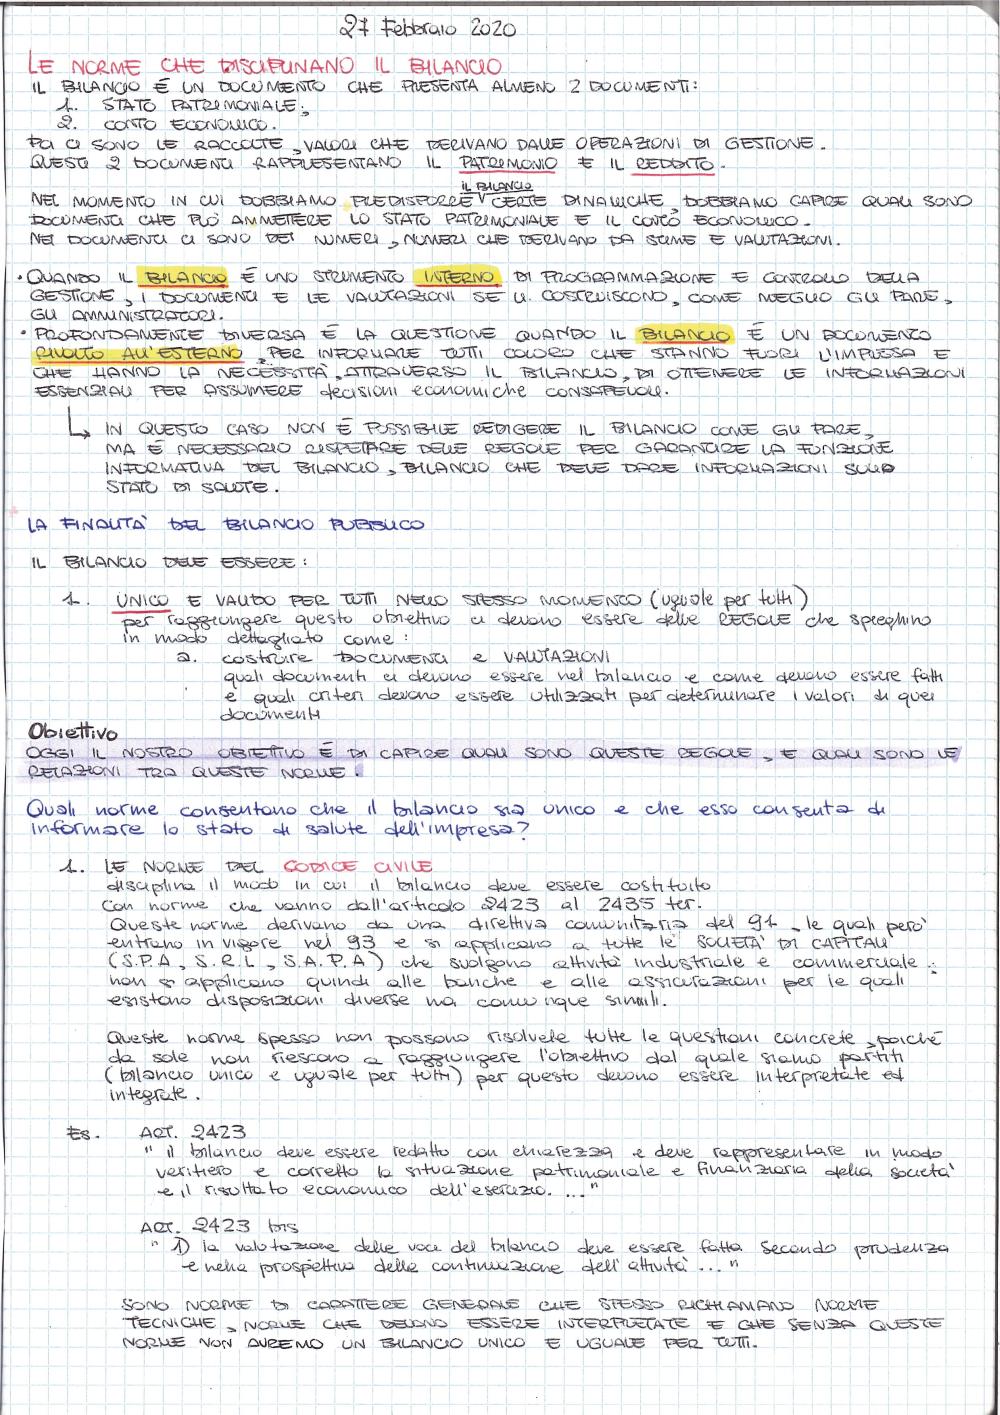 27 Febbraio 2020
LE NORME CHE DISCIPLINANO IL BILANCIO
IL BILANCIO É UN DOCUMENTO CHE PRESENTA ALMENO 2 DOCUMENTI:
1. STATO PATRIMONIALE;
2. CONTO ECONOMICO.
POI CI SONO LE RACCOLTE, VALORI CHE DERIVANO DALLE OPERAZIONI DI GESTIONE.
QUESTI 2 DOCUMENTI RAPPRESENTANO IL PATRIMONIO E IL REDDITO.
IL BILANCIO
NEL MOMENTO IN CUI DOBBIAMO PREDISPORRE CERTE DINAMICHE, DOBBIAMO CAPIRE QUALI SONO
DOCUMENTI CHE PUÒ AMMETTERE LO STATO PATRIMONIALE E IL CONTO ECONOMICO.
NEI DOCUMENTI CI SONO DEI NUMERI, NUMERI CHE DERIVANO DA STIME E VALUTAZIONI.
• QUANDO IL BILANCIO É UNO STRUMENTO INTERNO DI PROGRAMMAZIONE E CONTROLLO DELLA
GESTIONE, I DOCUMENTI E LE VALUTAZIONI SE LI COSTRUISCONO, COME MEGLIO GLI PARE,
GLI AMMINISTRATORI.
• PROFONDAMENTE DIVERSA É LA QUESTIONE QUANDO IL BILANCIO É UN DOCUMENTO
RIVOLTO ALL'ESTERNO, PER INFORMARE TUTTI COLORO CHE STANNO FUORI L'IMPRESA E
CHE HANNO LA NECESSITÀ, ATTRAVERSO IL BILANCIO, DI OTTENERE LE INFORMAZIONI
ESSENZIALI PER ASSUMERE decisioni economiche CONSAPEVOLI.
↳ IN QUESTO CASO NON É POSSIBILE REDIGERE IL BILANCIO COME GLI PARE,
MA É NECESSARIO RISPETTARE DELLE REGOLE PER GARANTIRE LA FUNZIONE
INFORMATIVA DEL BILANCIO, BILANCIO CHE DEVE DARE INFORMAZIONI SULLO
STATO DI SALUTE.
LA FINALITÀ DEL BILANCIO PUBBLICO
IL BILANCIO DEVE ESSERE:
1. UNICO E VALIDO PER TUTTI NELLO STESSO MOMENTO (uguale per tutti)
per raggiungere questo obiettivo ci devono essere delle REGOLE che spieghino
in modo dettagliato come:
a. costruire DOCUMENTI e VALUTAZIONI
quali documenti ci devono essere nel bilancio e come devono essere fatti
e quali criteri devono essere utilizzati per determinare i valori di quei
documenti
Obiettivo
OGGI IL NOSTRO OBIETTIVO É DI CAPIRE QUALI SONO QUESTE REGOLE, E QUALI SONO LE
RELAZIONI TRA QUESTE NORME.
Quali norme consentono che il bilancio sia unico e che esso consenta di
informare lo stato di salute dell'impresa?
1. LE NORME DEL CODICE CIVILE
disciplina il modo in cui il bilancio deve essere costituito
Con norme che vanno dall'articolo 2423 al 2435 ter.
Queste norme derivano da una direttiva comunitaria del 91, le quali però
entrano in vigore nel 93 e si applicano a tutte le SOCIETÀ DI CAPITALI
(S.P.A, S.R.L, S.A.P.A) che svolgono attività industriale e commerciale:
non si applicano quindi alle banche e alle assicurazioni per le quali
esistono disposizioni diverse ma comunque simili.
Queste norme spesso non possono risolvere tutte le questioni concrete, poiché
da sole non riescono a raggiungere l'obiettivo dal quale siamo partiti
(bilancio unico e uguale per tutti) per questo devono essere interpretate ed
integrate.
Es. ART. 2423
" il bilancio deve essere redatto con chiarezza e deve rappresentare in modo
veritiero e corretto la situazione patrimoniale e finanziaria della società
e il risultato economico dell'esercizio. ..."
ART. 2423 bis
" 1) la valutazione delle voce del bilancio deve essere fatta secondo prudenza
e nella prospettiva della continuazione dell'attività ... "
SONO NORME DI CARATTERE GENERALE CHE SPESSO RICHIAMANO NORME
TECNICHE, NORME CHE DEVONO ESSERE INTERPRETATE E CHE SENZA QUESTE
NORME NON AVREMO UN BILANCIO UNICO E UGUALE PER TUTTI.